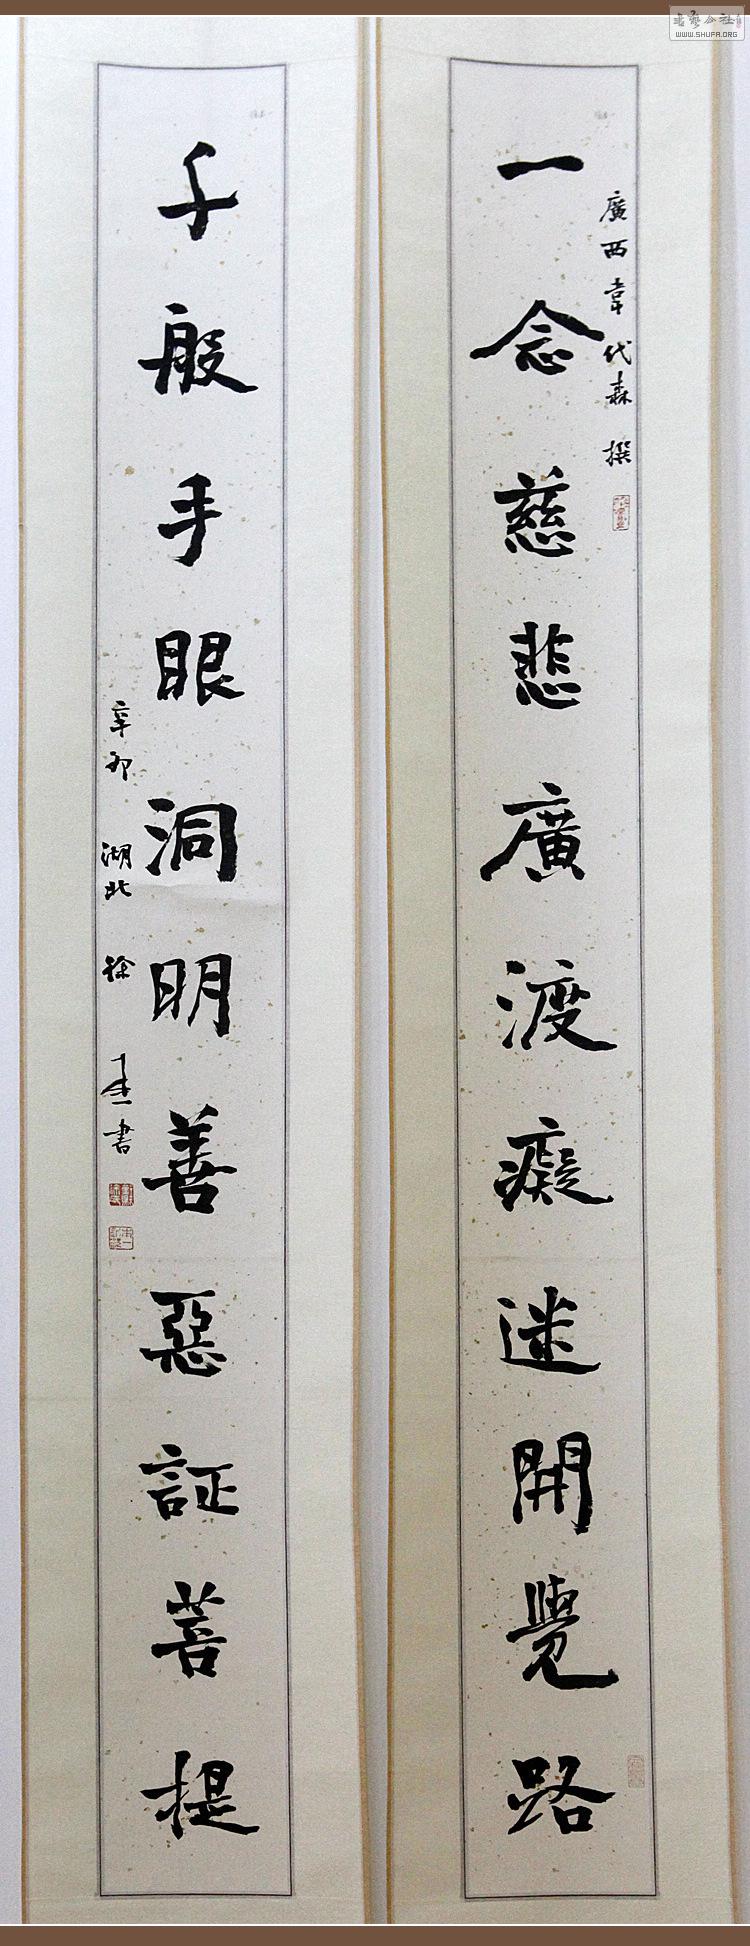 書藝公社
WWW.SHUFA.ORG
廣西韋代森撰
一念慈悲廣渡癡迷開覺路
千般手眼洞明善惡証菩提
辛卯湖北徐書